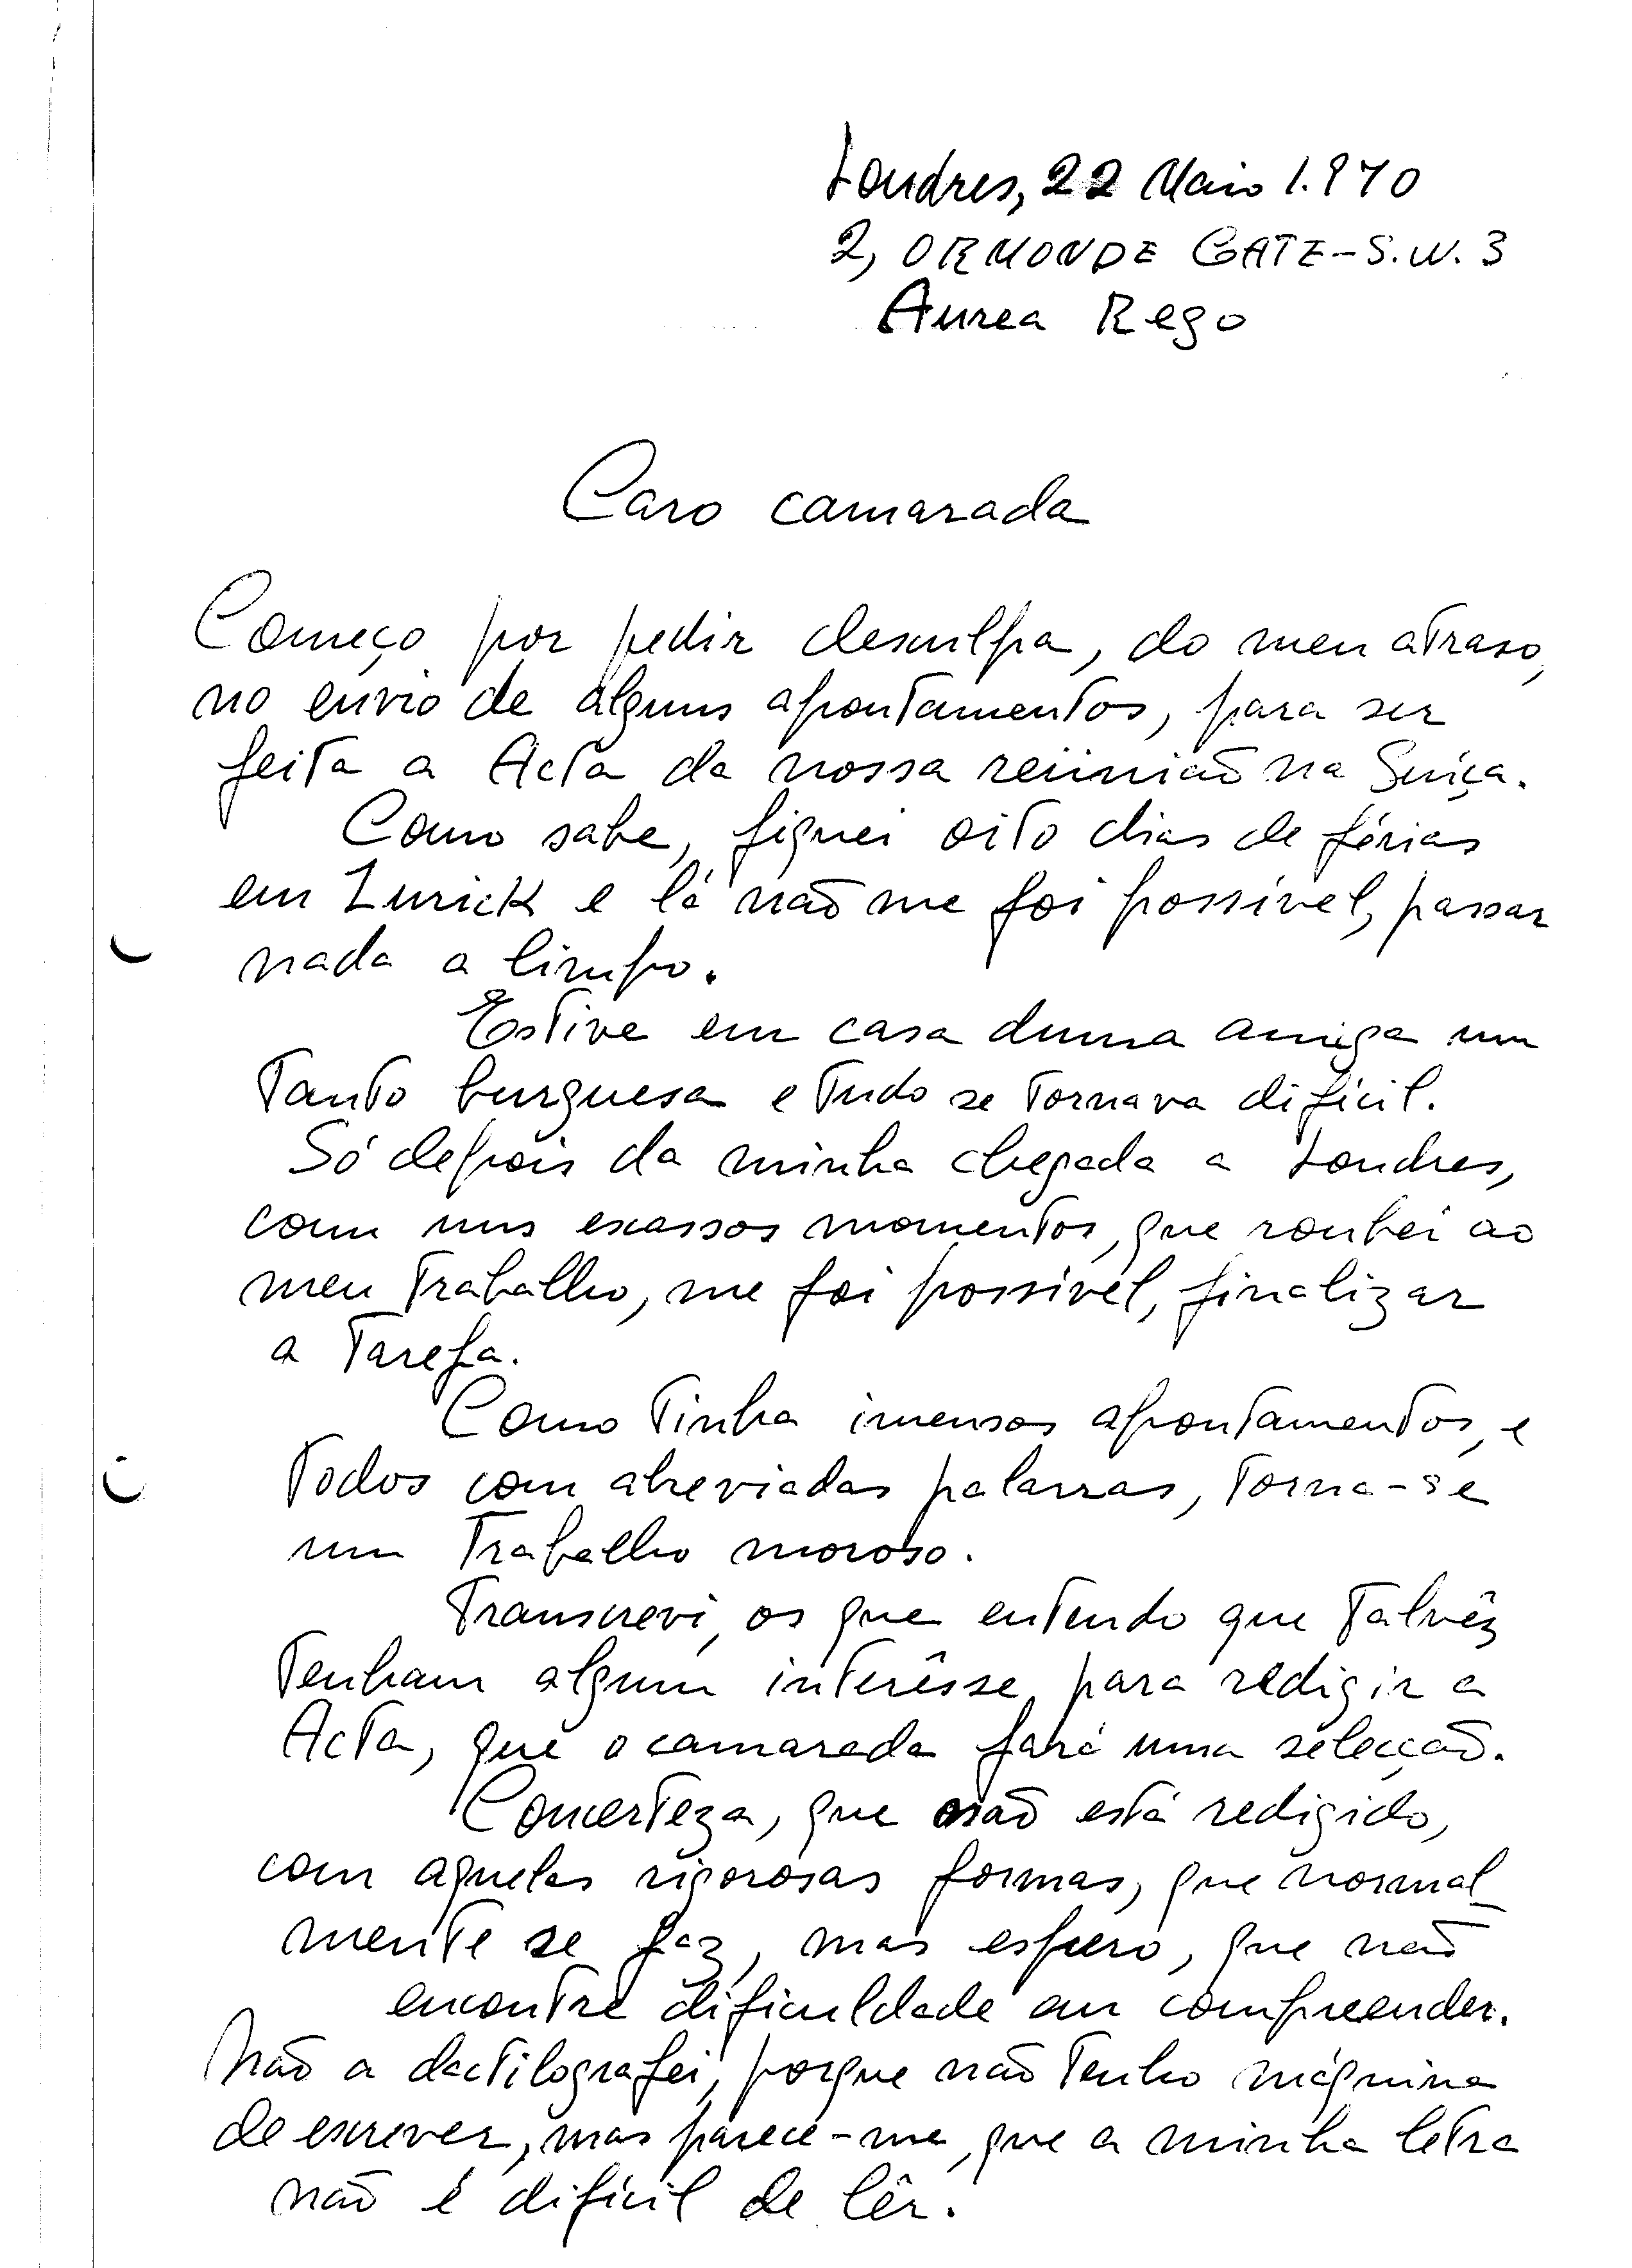 Londres, 22 Maio 1.970
2, ORMONDE GATE-S.W. 3
Aurea Rego
Caro camarada
Começo por pedir desculpa, do meu atraso,
no envio de alguns apontamentos, para ser
feita a Acta da nossa reünião na Suiça.
Como sabe, fiquei oito dias de férias
em Zurick e lá não me foi possível, passar
nada a limpo.
Estive em casa duma amiga um
tanto burguesa e tudo se tornava difícil.
Só depois da minha chegada a Londres,
com uns escassos momentos, que roubei ao
meu trabalho, me foi possível, finalizar
a tarefa.
Como tinha imensos apontamentos, e
todos com abreviadas palavras, torna-se
um trabalho moroso.
Transcrevi, os que entendo que talvêz
tenham algum interêsse, para redigir a
Acta, que o camarada fará uma selecção.
Concerteza, que não está redigido,
com aquelas rigorosas formas, que normal
mente se faz, mas espero, que não
encontre dificuldade em compreender.
Não a dactilografei, porque não tenho máquina
de escrever, mas parece-me, que a minha letra
não é difícil de lêr.